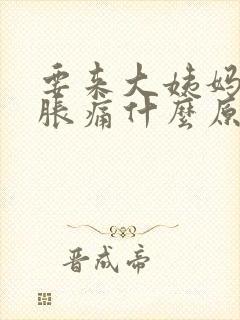 要来大姨妈
胀痛什麼原
晋成帝